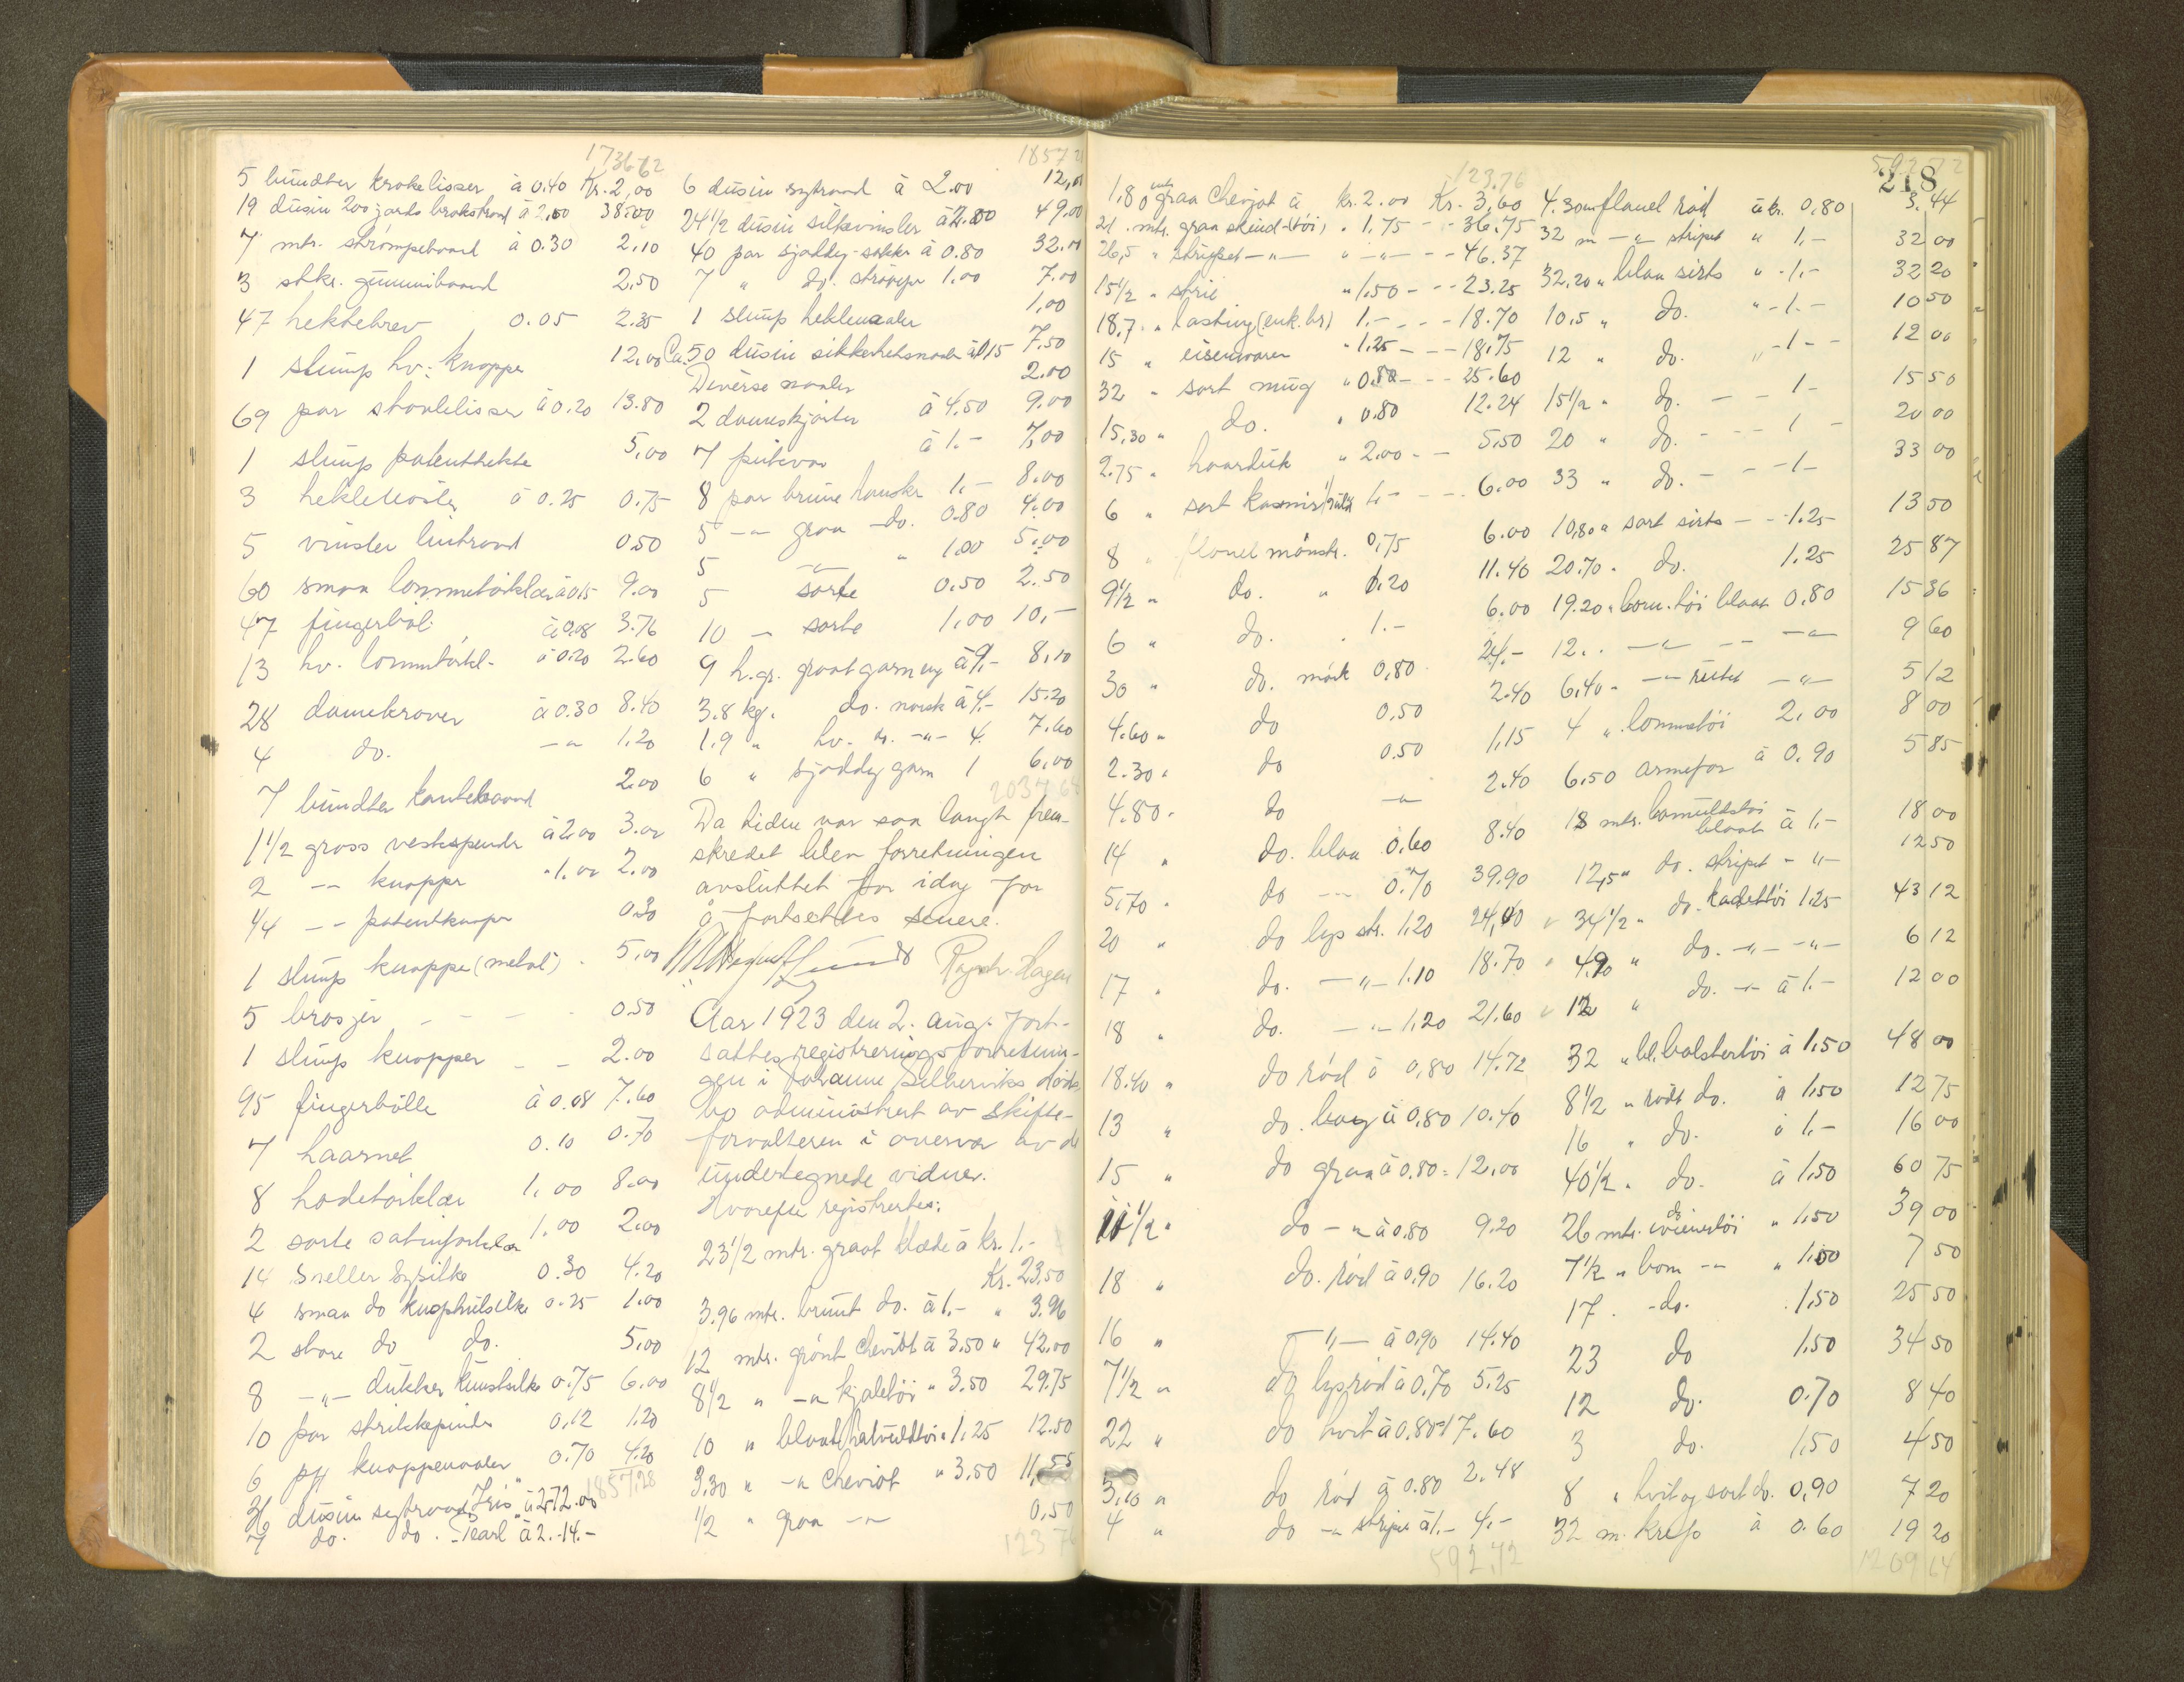 173662
5 bundter krøkelisser à 0.40 Kr. 2,00
19 dusin 200 yards brokstraad à 2,00 38.00
7 mtr. strømpebaand à 0.30 2,10
3 stkr. gummibaand 2,50
47 hektebrev 0.05 2.35
1 slump hv. knapper 12,00
69 par skolisser à 0.20 13.80
1 slump patenthekte 5,00
3 heklet à 0.25 0.75
5 vinsler lintraad 0.50
60 smaa lommetørklær à 0.15 9.00
47 fingerbøl à 0.08 3.76
13 hv. lommetørkl. à 0.20 2.60
28 damekraver à 0.30 8.40
4 do. -"- 1.20
7 bundter kantebaand 2.00
1 1/2 gross vestspender à 2.00 3.00
2 -"- knapper " 1.00 2.00
1/4 -"- patentknapper 0.30
1 slump knapper (metal) 5,00
5 brosjer 0.50
1 slump knapper 2.00
95 fingerbølle à 0.08 7.60
7 haarnet 0.10 0.70
8 hodetørklær 1,00 8.00
2 sorte satinforklær 1.00 2.00
14 sneller sysilke 0.30 4.20
4 smaa do knaphulsilke 0.25 1.00
2 store do do. 5,00
8 -"- dukker kunstsilke 0.75 6.00
10 par strikkepinder 0.12 1.20
6 pk knappenaaler 0.70 4.20
1857,28
36 dusin sytraad "Iris" à 2. 72.00
7 do. do. Pearl à 2.-14.-
1857 28
6 dusin sytraad à 2.00 12,00
24 1/2 dusin silkevinsler à 2.00 49.00
40 par sjoddy-sokker à 0.80 32.00
7 " do. strømper 1.00 7.00
1 slump heklenaaler 1,00
Ca. 50 dusin sikkerhetsnaaler à 0.15 7.50
Diverse naaler 2.00
2 dameskjorter à 4.50 9.00
7 putevar à 1.- 7,00
8 par brune hansker 1.- 8.00
5 -"- graa -do. 0.80 4.00
5 -"- " 1.00 5.00
5 sorte 0.50 2.50
10 - sorte 1,00 10,-
9 h.gr. graat garn eng à 9.- 8,10
3.8 kg. do. norsk à 4.- 15.20
1.9 " hv. do. -"- 4. 7.60
6 " sjoddy garn 1 6,00
2034 68
Da tiden var saa langt frem-
skredet blev forretningen
avsluttet for idag for
å fortsettes senere.
Hagen
Aar 1923 den 2. aug. fort-
sattes registreringsforretnin-
gen i Johanne Silberviks døds-
bo administrert av skifte-
forvalteren i overvær av de
undertegnede vidner.
Hvorefter registrertes:
23 1/2 mtr. graat klæde à kr. 1.-
Kr. 23,50
3.96 mtr. brunt do. à 1.- " 3.96
12 mtr. grønt cheviot à 3.50 " 42,00
8 1/2 " -"- kjoletøi " 3.50 29.75
10 " blaat halvuldtøi " 1.25 12.50
3.30 " -"- cheviot " 3.50 11,55
1/2 " graa -"- 0,50
123 76
123.76
1,80 mtr graa Cheviot à kr. 2.00 Kr. 3,60
21 mtr. graa skind-tøi " 1,75 - - 36.75
26,5 " stripet -"- " -"- - - 46.37
15 1/2 " strie " 1,50 - - 23.25
18,7 " lasting (enk. br.) 1.- - - 18.70
15 " eisenvarer " 1.25 - - 18.75
32 " sort mug " 0.80 - - 25.60
15,30 " do. " 0.80 12.24
2.75 " haarduk " 2.00 - - 5.50
6 " sort kasmir 1.- - - 6.00
8 " flonel mønstr. 0,75 6.00
9 1/2 " do. " 1.20 11.40
6 " do. " 1.- 6.00
30 " do. mørk 0,80 24.-
4.60 " do 0.50 2.40
2.30 " do 0.50 1,15
4.80 " do -"- 2.40
14 " do. blaa 0.60 8.40
5,70 " do -"- 0.70 39.90
20 " do lys str. 1.20 24,00
17 " do. -"- 1.10 18.70
18 " do. -"- 1.20 21.60
18.40 " do rød à 0,80 14.72
13 " do. à 0,80 10.40
15 " do graa à 0.80 = 12,00
11 1/2 " do -"- à 0.80 9.20
18 " do. rød à 0.90 16.20
16 " -"- à 0.90 14.40
7 1/2 " do lysrød à 0.70 5.25
22 " do hvit à 0.80 = 17.60
3,10 " do rød à 0.80 2.48
4 " do -"- stripe à 1.- 4.-
592,72
592 72
218
4.30 m flanel rød à kr. 0,80 3,44
32 m -"- stripet " 1,- 32 00
32,20 " blaa sirts " 1.- 32 20
10,5 " do. " 1.- 10 50
12 " do. " 1.- 12 00
15 1/2 " do. - - 1- 15 50
20 " do. - - - 1 - 20 00
33 " do. - - -1- 33 00
10,80 " sort sirts - - 1.25 13 50
20.70 " do. 1.25 25 87
19.20 " bom.tøi blaat 0.80 15 36
12 " -"- -"- 9 60
6,40 " -"- rutet -"- 5 12
4 " lommetøi 2,00 8 00
6.50 armefor à 0.90 5 85
18 mtr. bomuldstøi
blaat à 1.- 18 00
12,5 " do. stripet - " - 12 50
34 1/2 " do. kadettøi 1.25 43 12
4.90 " do. -"- -"- 6 12
12 " do. -"- à 1.- 12 00
32 " bl. bolstertøi à 1,50 48 00
8 1/2 " rødt do. à 1,50 12 75
16 " do. à 1.- 16 00
40 1/2 " do. à 1,50 60 75
26 mtr. do " 1,50 39 00
7 1/2 " bom -"- " 1.00 7 50
17 " do. 1,50 25 50
23 do 1.50 34 50
12 do. 0.70 8 40
3 do. 1,50 4 50
8 " hvit og sort do. 0,90 7 20
32 m. krep à 0.60 19 20
1209 64